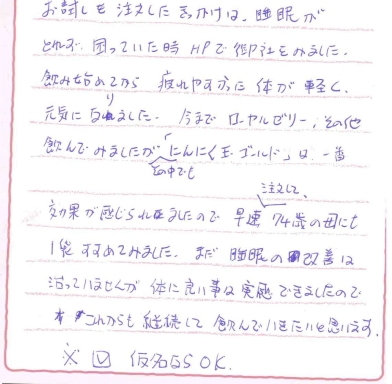 お試しを注文したきっかけは、睡眠が
とれず、困っていた時HPで御社をみました。
飲み始めてから 疲れやすかった体が軽く、
元気になりました。今までローヤルゼリー、その他
飲んでみましたが「にんにく玉ゴールド」は、一番
の中でも
注文して、
効果が感じられましたので 早速 74歳の母にも
1袋すすめてみました。まだ 睡眠の改善は
治っていませんが 体に良い事は実感できましたので
これからも継続して 飲んでいきたいと思います。
※ ☑ 仮名ならOK.